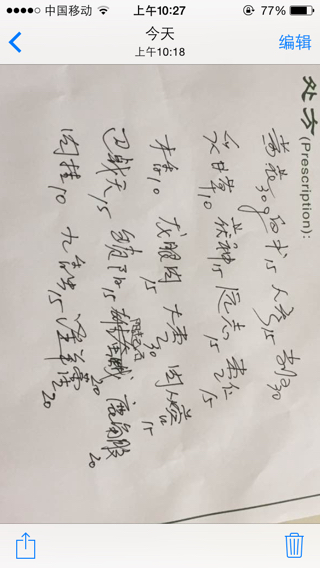 中国移动 上午10:27 77%
今天
上午10:18
编辑
处方(Prescription):
黄芪30g 白术15 人参15 当归30
炙甘草10 茯神15 远志15 枣仁15
木香10 龙眼肉15 大枣 肉苁蓉15
巴戟天15 锁阳15 20
肉桂10 九香虫15 淫羊藿20